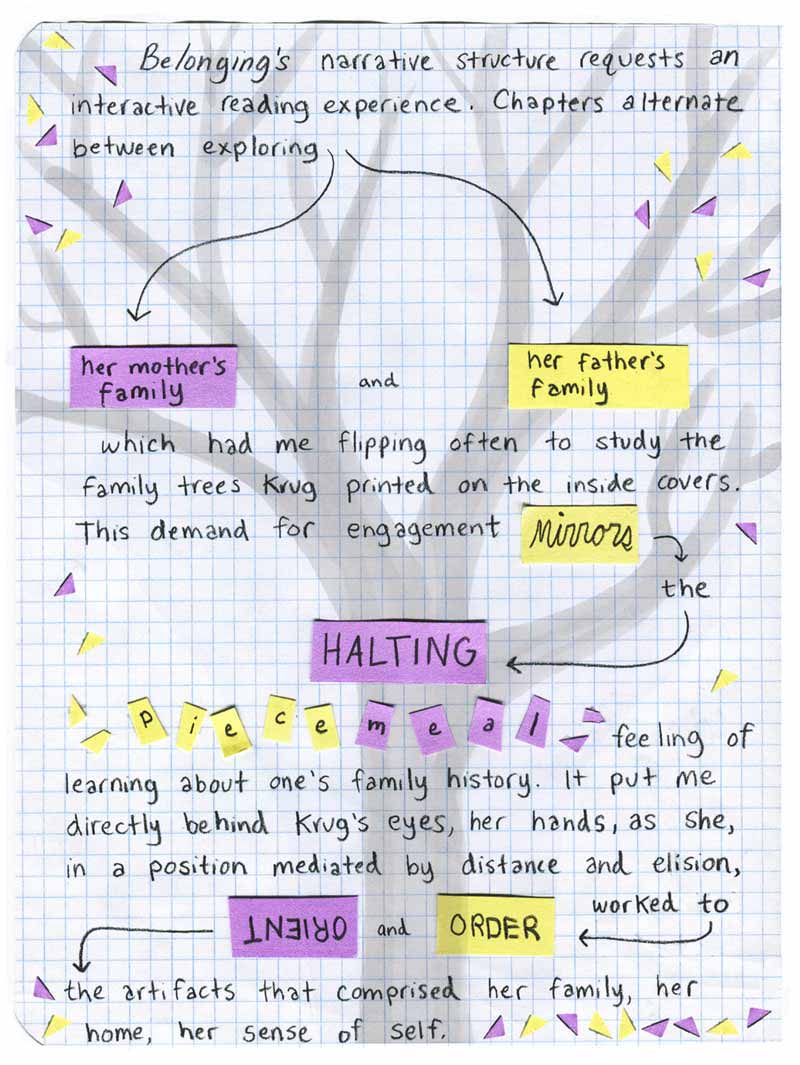 Belonging's narrative structure requests an
interactive reading experience. Chapters alternate
between exploring
her mother's
family
and
her father's
family
which had me flipping often to study the
family trees Krug printed on the inside covers.
This demand for engagement mirrors
the
HALTING
piecemeal feeling of
learning about one's family history. It put me
directly behind Krug's eyes, her hands, as she,
in a position mediated by distance and elision,
worked to
ORIENT and ORDER
the artifacts that comprised her family, her
home, her sense of self.